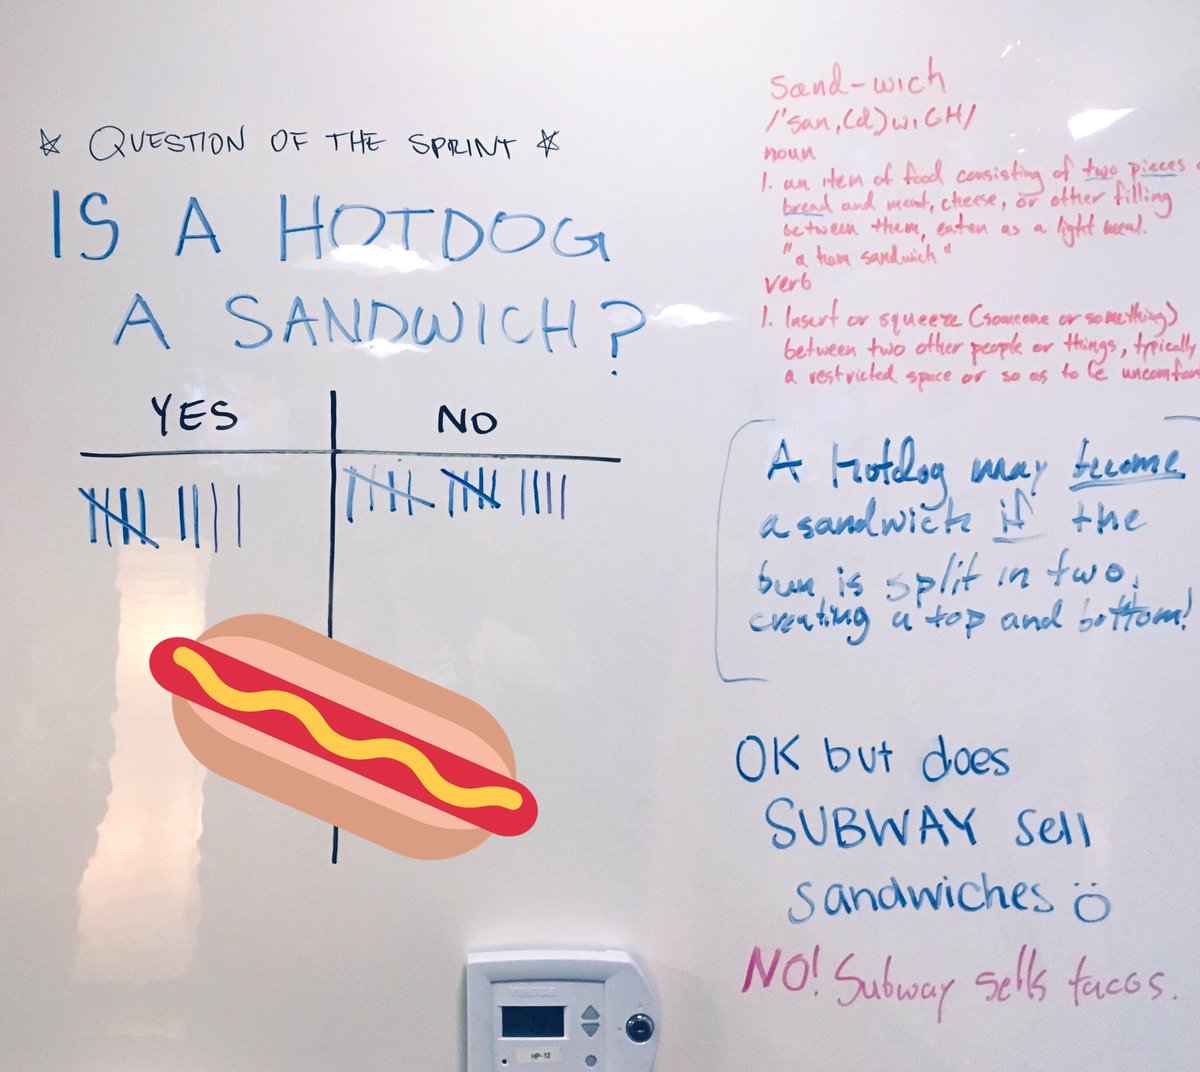 ☆ QUESTION OF THE SPRINT ☆
IS A HOTDOG
A SANDWICH?
YES
NO
sand-wich
/'san,(d)wiCH/
noun
1. an item of food consisting of two pieces
bread and meat, cheese, or other filling
between them, eaten as a light meal.
"a ham sandwich"
verb
1. Insert or squeeze (someone or something)
between two other people or things, typically
a restricted space or so as to be
A Hotdog may become
a sandwich if the
bun is split in two,
creating a top and bottom!
OK but does
SUBWAY sell
sandwiches
NO! Subway sells tacos.
HP-12